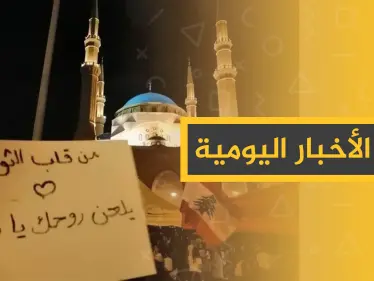 من قلب الثو
يلعن روحك يا
الأخبار اليومية